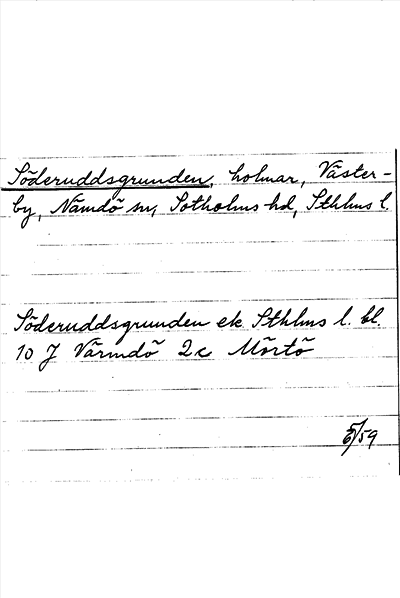 Söderuddsgrunden, holmar, Väster-
by, Nämdö sn, Sotholms hd, Sthlms l.
Söderuddsgrunden ek. Sthlms l. bl.
10 J Värmdö 2c Mörtö
/59